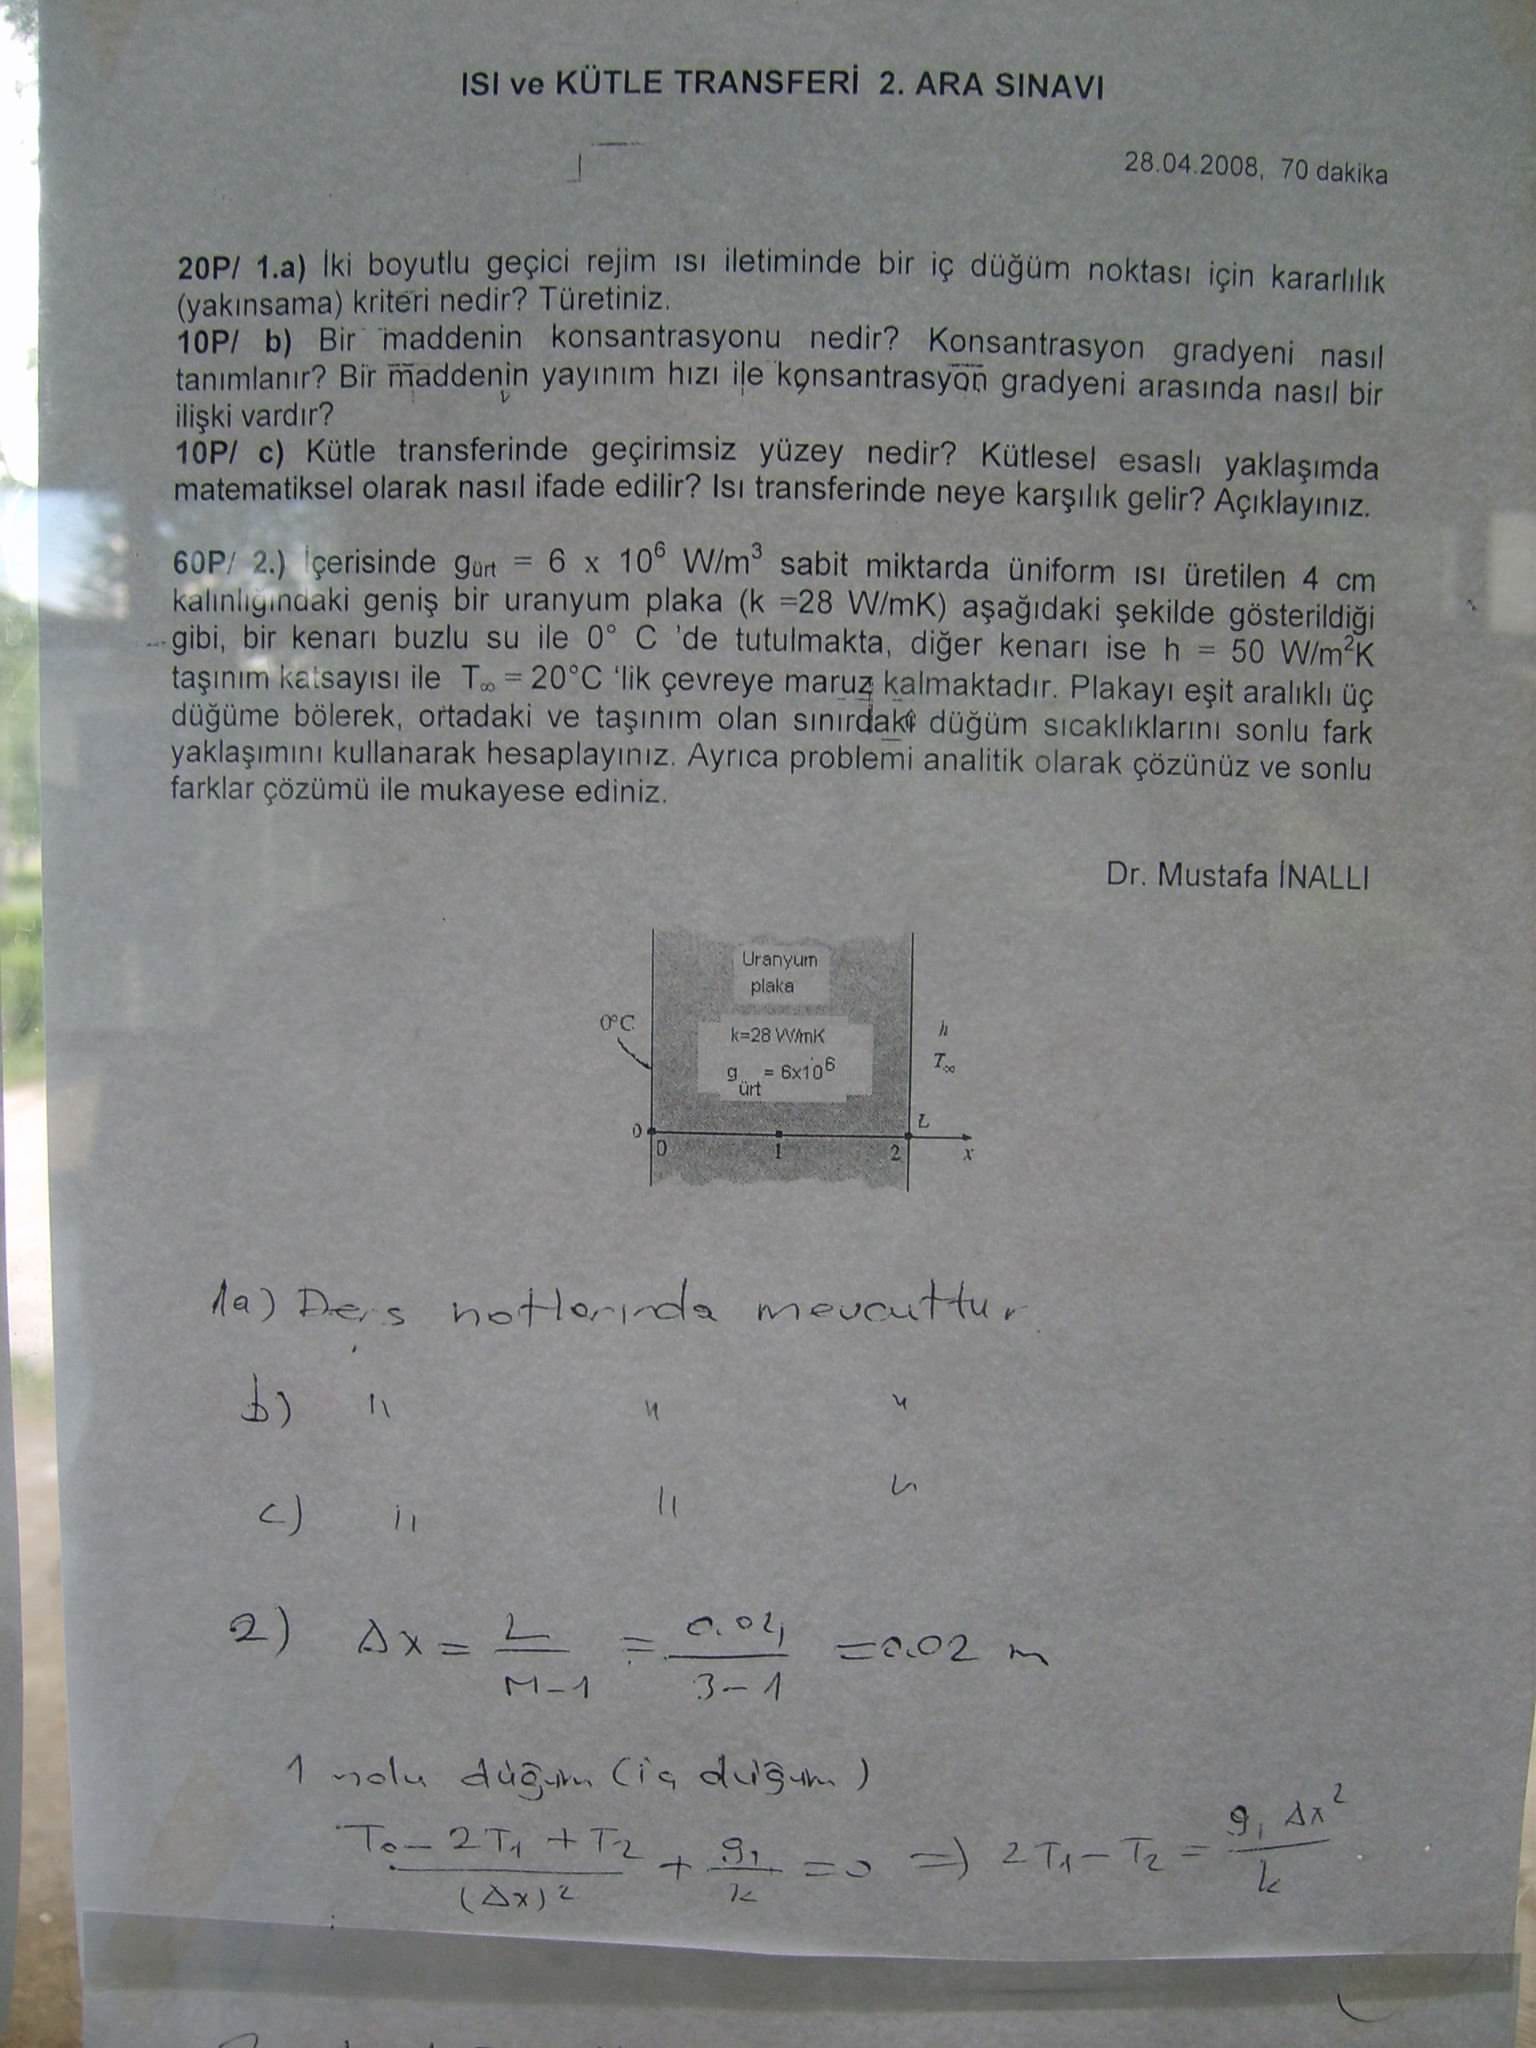 ISI ve KÜTLE TRANSFERİ 2. ARA SINAVI
28.04.2008, 70 dakika
20P/ 1.a) İki boyutlu geçici rejim ısı iletiminde bir iç düğüm noktası için kararlılık
(yakınsama) kriteri nedir? Türetiniz.
10P/ b) Bir maddenin konsantrasyonu nedir? Konsantrasyon gradyeni nasıl
tanımlanır? Bir maddenin yayınım hızı ile konsantrasyon gradyeni arasında nasıl bir
ilişki vardır?
10P/ c) Kütle transferinde geçirimsiz yüzey nedir? Kütlesel esaslı yaklaşımda
matematiksel olarak nasıl ifade edilir? Isı transferinde neye karşılık gelir? Açıklayınız.
60P/ 2.) İçerisinde gürt = 6 x 10⁶ W/m³ sabit miktarda üniform ısı üretilen 4 cm
kalınlığındaki geniş bir uranyum plaka (k =28 W/mK) aşağıdaki şekilde gösterildiği
gibi, bir kenarı buzlu su ile 0° C 'de tutulmakta, diğer kenarı ise h = 50 W/m²K
taşınım katsayısı ile T∞ = 20°C 'lik çevreye maruz kalmaktadır. Plakayı eşit aralıklı üç
düğüme bölerek, ortadaki ve taşınım olan sınırdaki düğüm sıcaklıklarını sonlu fark
yaklaşımını kullanarak hesaplayınız. Ayrıca problemi analitik olarak çözünüz ve sonlu
farklar çözümü ile mukayese ediniz.
Dr. Mustafa İNALLI
Uranyum
plaka
0°C
k=28 W/mK
h
g ürt = 6x10⁶
T∞
0
L
0 1 2 x
1a) Ders notlarında mevcuttur.
b) " " "
c) " " "
2) Δx = L / M-1 = 0.04 / 3-1 = 0.02 m
1 nolu düğüm (iç düğüm)
T₀ - 2T₁ + T₂ / (Δx)² + g₁ / k = 0 ⇒ 2T₁ - T₂ = g₁ Δx² / k